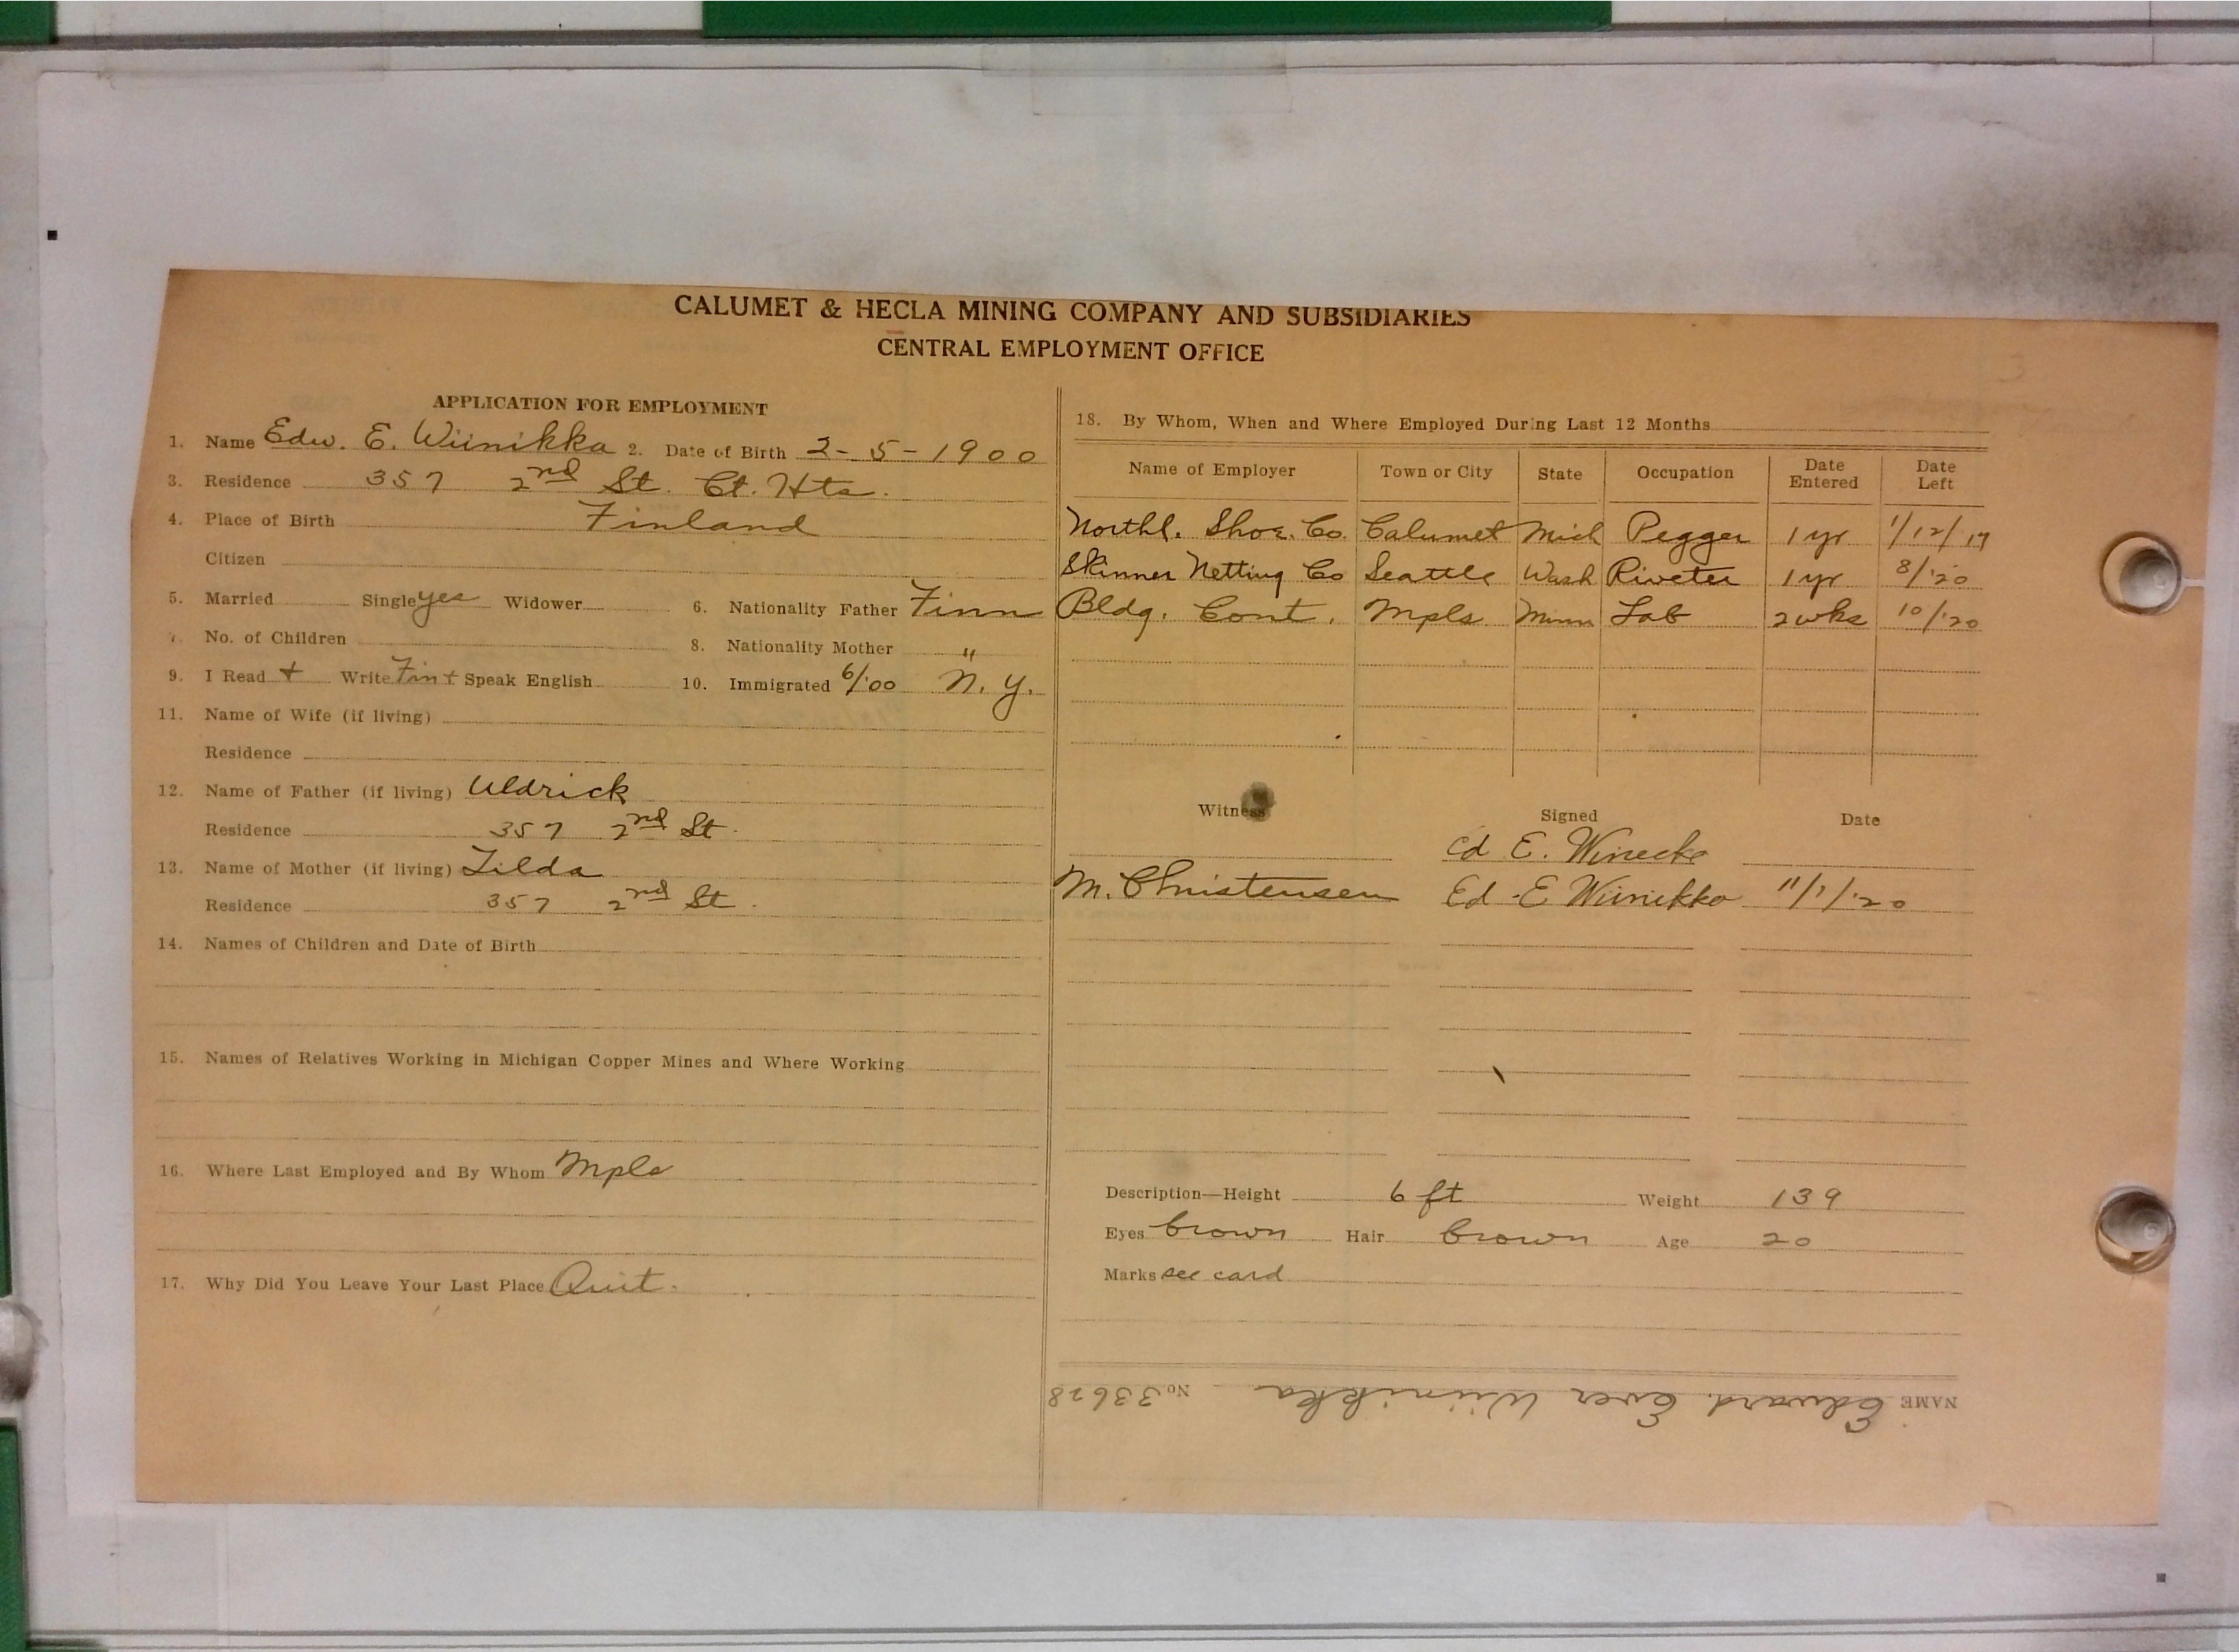 CALUMET & HECLA MINING COMPANY AND SUBSIDIARIES
CENTRAL EMPLOYMENT OFFICE
APPLICATION FOR EMPLOYMENT
1. Name Edw. E. Wiinikka 2. Date of Birth 2-5-1900
3. Residence 357 2nd St. Ct. Hts.
4. Place of Birth Finland
Citizen
5. Married Single yes Widower 6. Nationality Father Finn
7. No. of Children 8. Nationality Mother "
9. I Read + Write Fin + Speak English 10. Immigrated 6/'00 N. Y.
11. Name of Wife (if living)
Residence
12. Name of Father (if living) Uldrick
Residence 357 2nd St.
13. Name of Mother (if living) Tilda
Residence 357 2nd St.
14. Names of Children and Date of Birth
15. Names of Relatives Working in Michigan Copper Mines and Where Working
16. Where Last Employed and By Whom Mpls
17. Why Did You Leave Your Last Place Quit.
18. By Whom, When and Where Employed During Last 12 Months
Name of Employer Town or City State Occupation Date Entered Date Left
Northl. Shoe. Co. Calumet Mich Pegger 1 yr 1/12/19
Skinner Netting Co Seattle Wash Riveter 1 yr 8/'20
Bldg. Cont. Mpls Minn Lab 2 wks 10/'20
Witness Signed Date
Ed E. Winecke
M. Christensen Ed E Wiinikka 11/1/'20
Description—Height 6 ft Weight 139
Eyes brown Hair brown Age 20
Marks see card
NAME Edward Ever Wiinikka No 33628